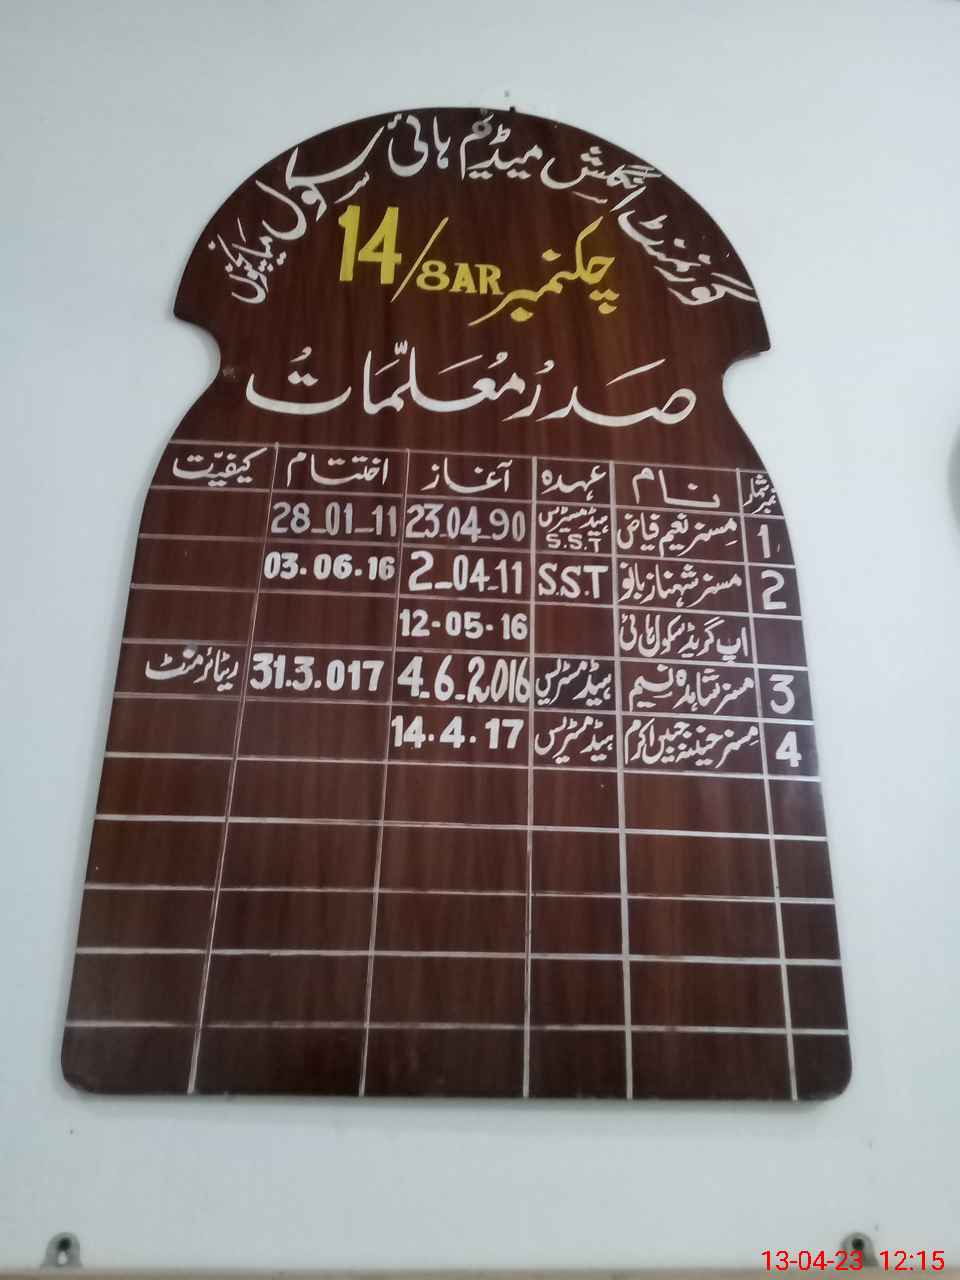 گورنمنٹ انگلش میڈیم ہائی سکول میاں چنوں
چکنمبر 14/8AR
صدر معلّمات
نمبر شمار نام عہدہ آغاز اختتام کیفیّت
1 مسز نعیم فیاض ہیڈ مسٹریس S.S.T 23.04.90 28-01-11
2 مسز شہناز بانو S.S.T 2-04-11 03.06.16
اپ گریڈ سکول ہائی 12-05-16
3 مسز شاہدہ نسیم ہیڈ مسٹریس 4-6-2016 31.3.017 ریٹائرمنٹ
4 مسز جبیں اکرم ہیڈ مسٹریس 14.4.17
13-04-23 12:15